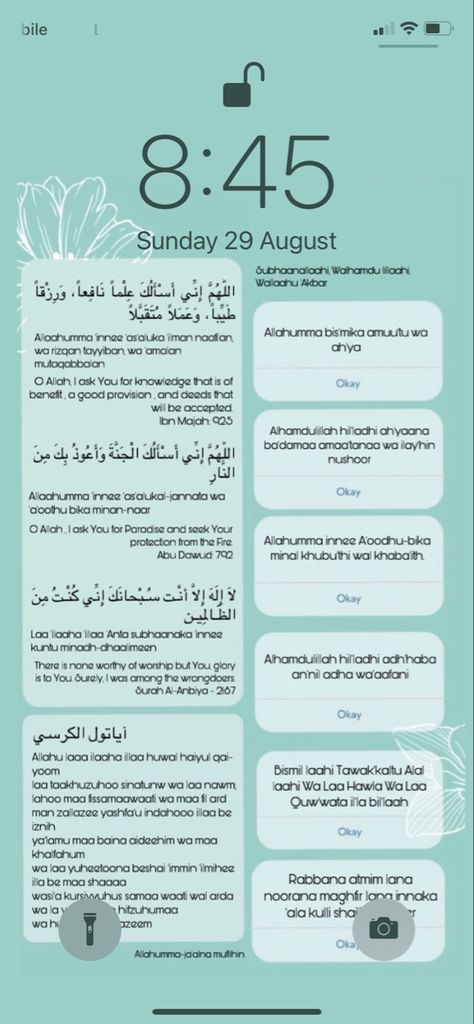 bile
8:45
Sunday 29 August
اللّهُمَّ إِنِّي أَسْأَلُكَ عِلْماً نَافِعاً، وَرِزْقاً
طَيِّباً، وَعَمَلاً مُتَقَبَّلاً
Allaahumma 'innee 'as'aluka 'ilman naafi'an,
wa rizqan tayyiban, wa 'amalan
mutaqabbalan
O Allah, I ask You for knowledge that is of
benefit , a good provision , and deeds that
will be accepted.
Ibn Majah: 925
اللّهُمَّ إِنِّي أَسْأَلُكَ الْجَنَّةَ وَأَعُوذُ بِكَ مِنَ
النَّارِ
Allaahumma 'innee 'as'alukal-jannata wa
'a'oothu bika minan-naar
O Allah , I ask You for Paradise and seek Your
protection from the Fire.
Abu Dawud: 792
لاَ إِلَهَ إِلاَّ أَنْتَ سُبْحَانَكَ إِنِّي كُنْتُ مِنَ
الظَّالِمِينَ
Laa 'ilaaha 'illaa 'Anta subhaanaka 'innee
kuntu minadh-dhaalimeen
There is none worthy of worship but You, glory
is to You. Surely, I was among the wrongdoers.
Surah Al-Anbiya - 21:87
أياتول الكرسي
Allahu laaa ilaaha illaa huwal haiyul qai-
yoom
laa taakhuzuhoo sinatunw wa laa nawm;
lahoo maa fissamaawaati wa maa fil ard
man zallazee yashfa'u indahooo illaa be
iznih
ya'lamu maa baina aideehim wa maa
khalfahum
wa laa yuheetoona beshai 'immin 'ilmihee
illa be maa shaaaa
wasi'a kursiyyuhus samaa waati wal arda
wa la hifzuhumaa
Allahumma-ja'alna muflihin.
Subhaanallaahi, Walhamdu lillaahi,
Wallaahu 'Akbar
Allahumma bismika amuutu wa
ah'ya
Okay
Alhamdulillah hil'ladhi ah'yaana
ba'damaa amaa'tanaa wa ilay'hin
nushoor
Okay
Allahumma innee A'oodhu-bika
minal khubu'thi wal khaba'ith.
Okay
Alhamdulillah hil'ladhi adh'haba
an'nil adha wa'aafani
Okay
Bismil laahi Tawak'kaltu Alal
laahi Wa Laa Hawla Wa Laa
Quw'wata il'la bil'laah
Okay
Rabbana atmim lana
noorana maghfir lana innaka
'ala kulli